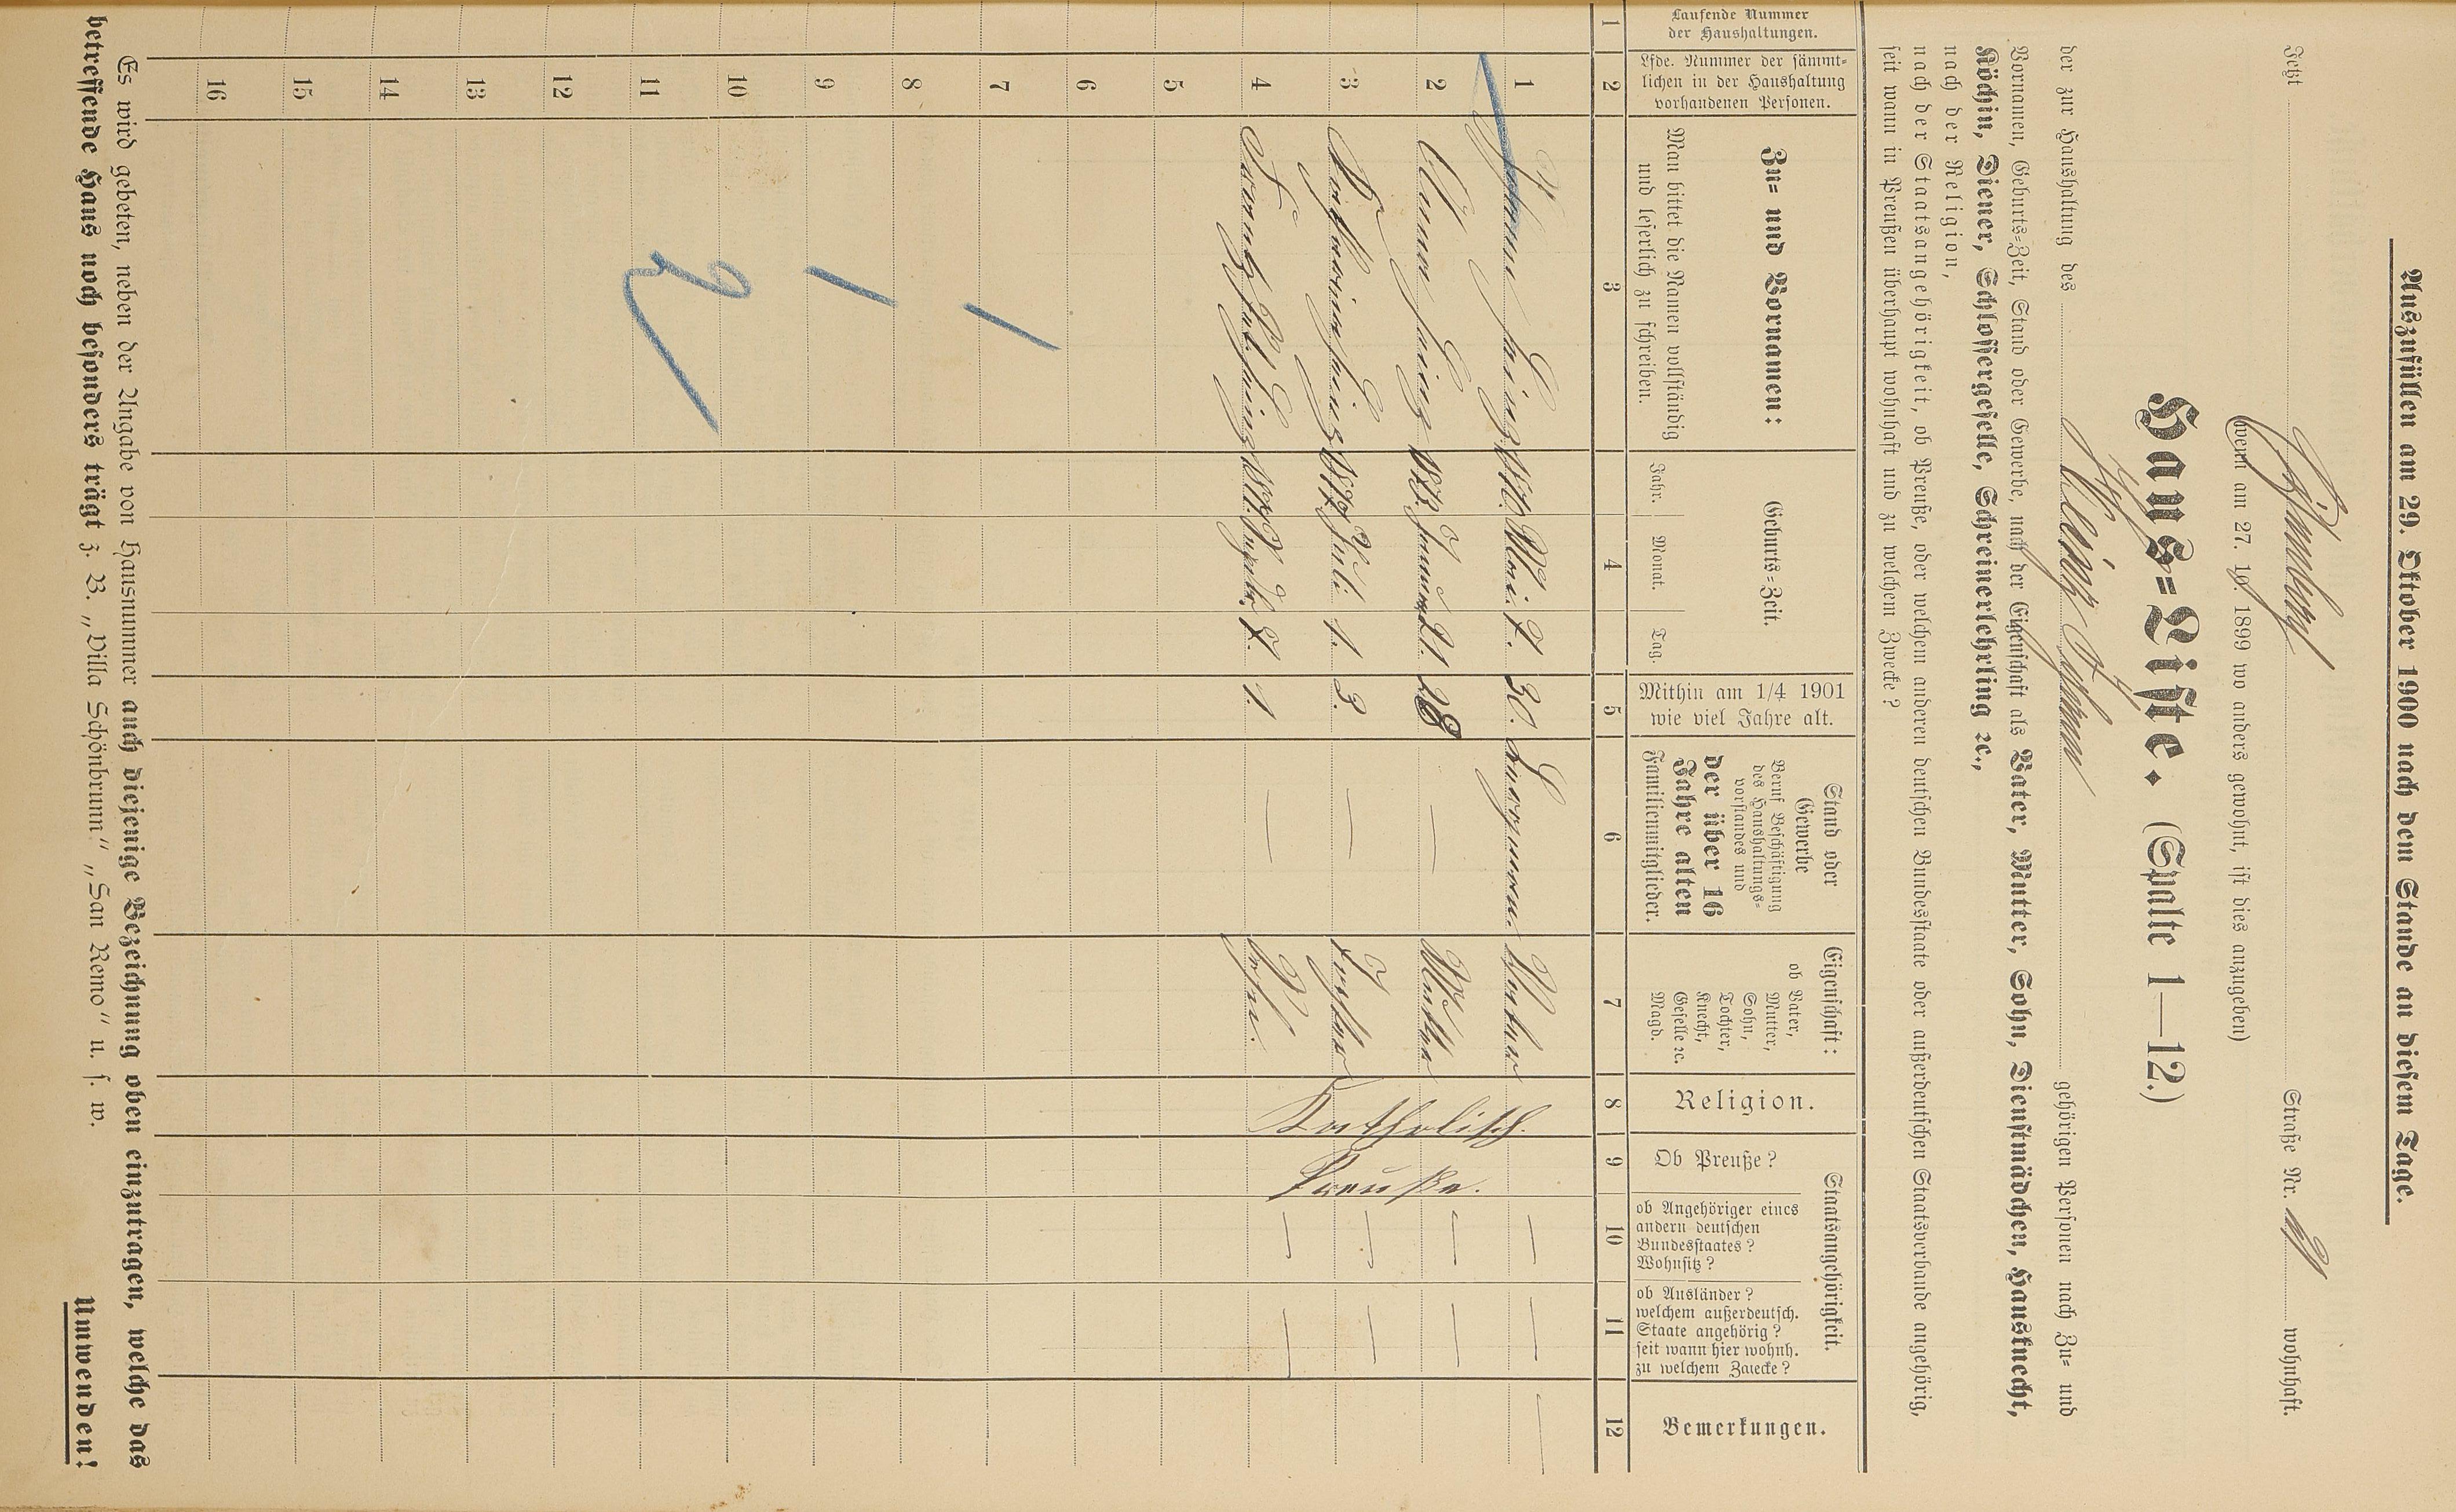 Auszufüllen am 29. Oktober 1900 nach dem Stande an diesem Tage.
Jetzt Straße Nr. wohnhaft.
(wenn am 27. 10. 1899 wo anders gewohnt, ist dies anzugeben)
Haus=Liste. (Spalte 1—12.)
der zur Haushaltung des Johann gehörigen Personen nach Zu= und
Vornamen, Geburts=Zeit, Stand oder Gewerbe, nach der Eigenschaft als Vater, Mutter, Sohn, Dienstmädchen, Hausknecht,
Köchin, Diener, Schlossergeselle, Schreinerlehrling ꝛc.,
nach der Religion,
nach der Staatsangehörigkeit, ob Preuße, oder welchem anderen deutschen Bundesstaate oder außerdeutschen Staatsverbande angehörig,
seit wann in Preußen überhaupt wohnhaft und zu welchem Zwecke?
Laufende Nummer
der Haushaltungen.
Lfde. Nummer der sämmt=
lichen in der Haushaltung
vorhandenen Personen.
Zu= und Vornamen:
Man bittet die Namen vollständig
und leserlich zu schreiben.
Geburts=Zeit.
Jahr. Monat. Tag.
Mithin am 1/4 1901
wie viel Jahre alt.
Stand oder
Gewerbe
Beruf Beschäftigung
des Haushaltungs=
vorstandes und
der über 16
Jahre alten
Familienmitglieder.
Eigenschaft:
ob Vater,
Mutter,
Sohn,
Tochter,
Knecht,
Geselle ꝛc.
Magd.
Religion.
Staatsangehörigkeit.
Ob Preuße?
ob Angehöriger eines
andern deutschen
Bundesstaates?
Wohnsitz?
ob Ausländer?
welchem außerdeutsch.
Staate angehörig?
seit wann hier wohnh.
zu welchem Zwecke?
Bemerkungen.
1 2 3 4 5 6 7 8 9 10 11 12
1 Johann Mai 7. 30. Vater
2 Anna Januar 21. 28 — Mutter
3 Katharina Juli 1. 3. — Tochter
4 7. 1. — Sohn.
Katholisch.
Preuße.
5
6
7
8
9
10
11
12
13
14
15
16
Es wird gebeten, neben der Angabe von Hausnummer auch diejenige Bezeichnung oben einzutragen, welche das
betreffende Haus noch besonders trägt z. B. „Villa Schönbrunn“ „San Remo“ u. s. w.
Umwenden!